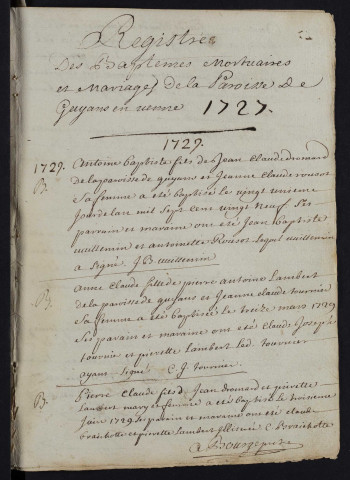 Registres
Des Baptemes Mortuaires
et Mariages de la Paroisse de
Guyans en venne 1727.
1729.
1729. Antoine baptiste fils de Jean Claude Dromard
B. de la paroisse de guyans et Jeanne Claude Roussot
sa femme a été baptisé le vingt unieme
jour de l'an mil sept cent vingt neuf ses
parrain et maraine ont été Jean Baptiste
vuillemin et antoinette Roussot lequel vuillemin
a signé J B vuillemin
B. anne Claude fille de pierre antoine Lambert
de la paroisse de guyans et Jeanne claude tournier
sa femme a été baptisée le treize mars 1729
ses parain et maraine ont été Claude Joseph
tournier et pierrette Lambert led. tournier
ayant signé C J tournier
B. Pierre Claude fils de Jean Dromard et pierrette
Lambert mary et femme a été baptisé le troisieme
Juin 1729 ses parain et maraine ont été claude
braichotte et pierrette Lambert C Braichotte